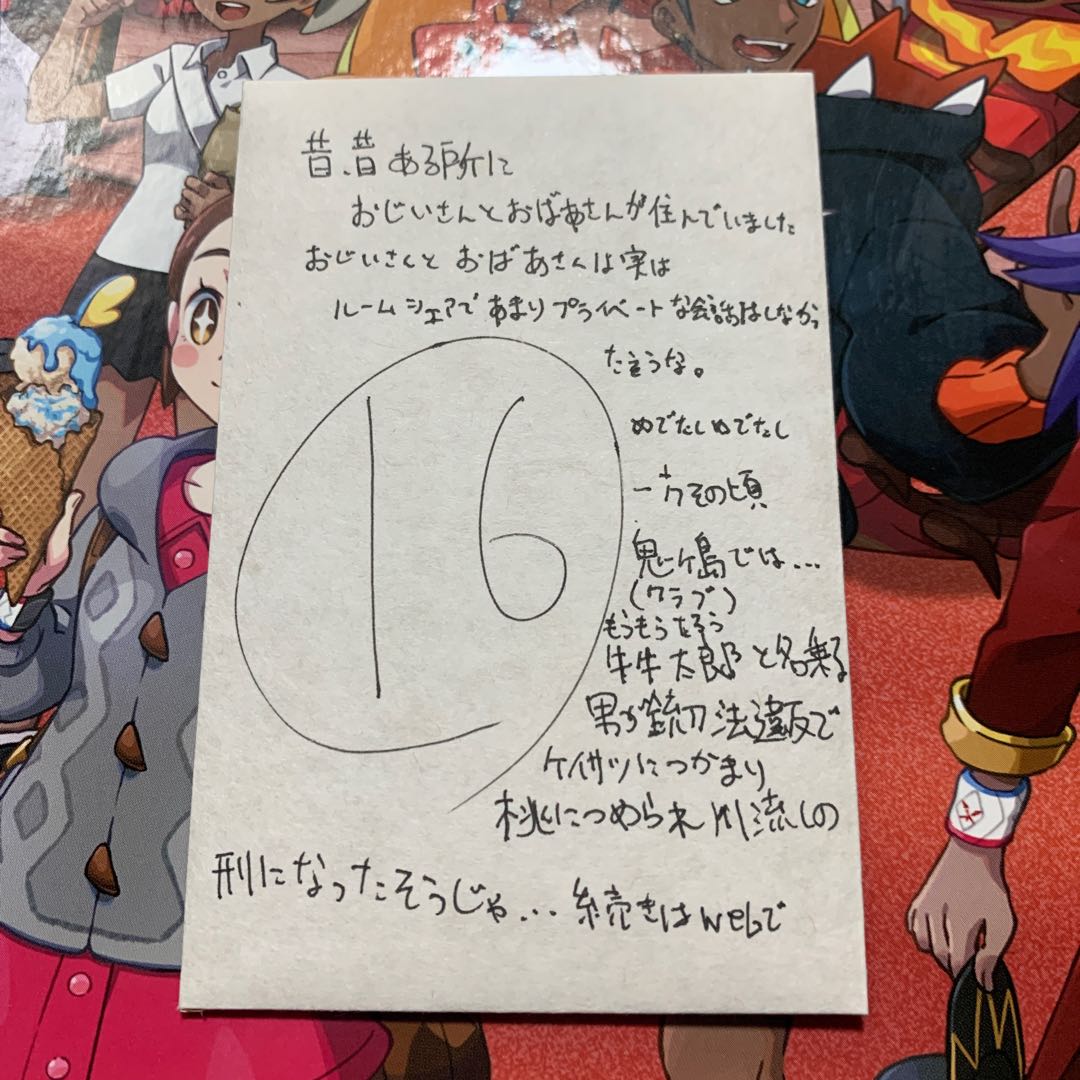 昔、昔 ある所に
おじいさんとおばあさんが住んでいました
おじいさんと おばあさんは実は
ルームシェアで あまりプライベートな会話はしなかっ
たそうな。
めでたしめでたし
16
一方その頃
鬼ヶ島では…
(クラブ)
もうもうたろう
牛牛太郎と名乗る
男が銃刀法違反で
ケイサツにつかまり
桃につめられ川流しの
刑になったそうじゃ… 続きはwebで